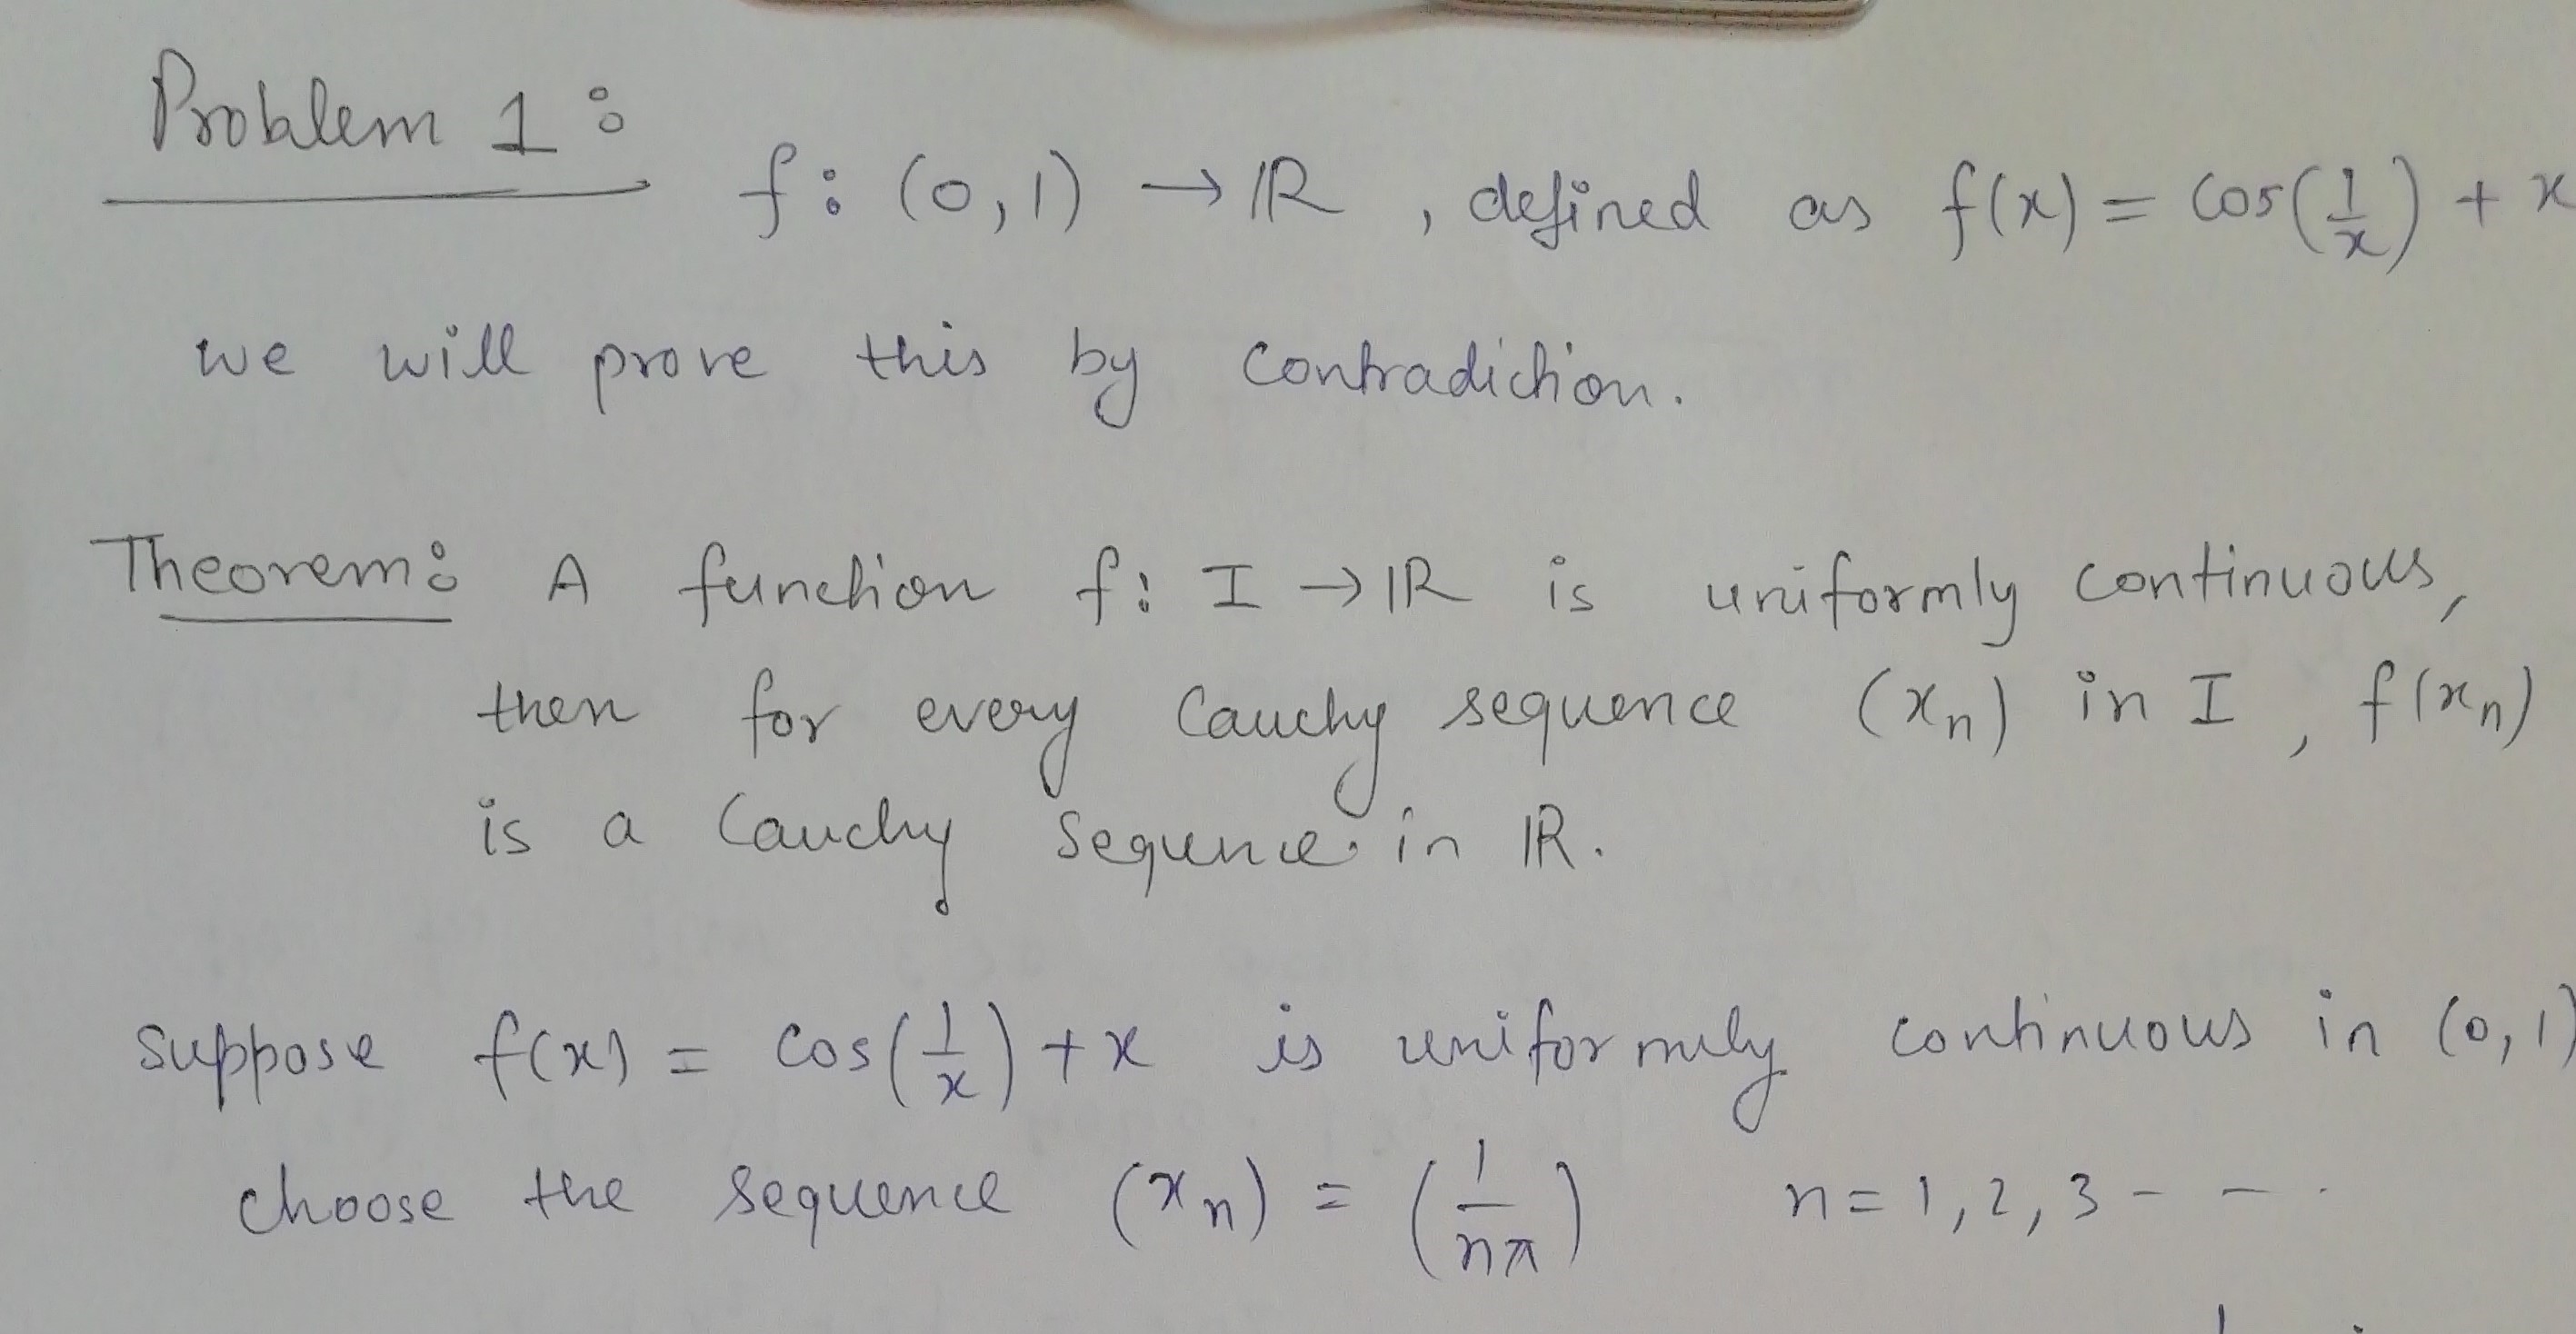 Problem 1:
f: (0,1) → ℝ , defined as f(x) = cos(1/x) + x
we will prove this by contradiction.
Theorem: A function f: I → ℝ is uniformly continuous,
then for every Cauchy sequence (xₙ) in I , f(xₙ)
is a Cauchy sequence in ℝ.
Suppose f(x) = cos(1/x) + x is uniformly continuous in (0,1)
choose the sequence (xₙ) = (1/nπ) n = 1, 2, 3 - - .